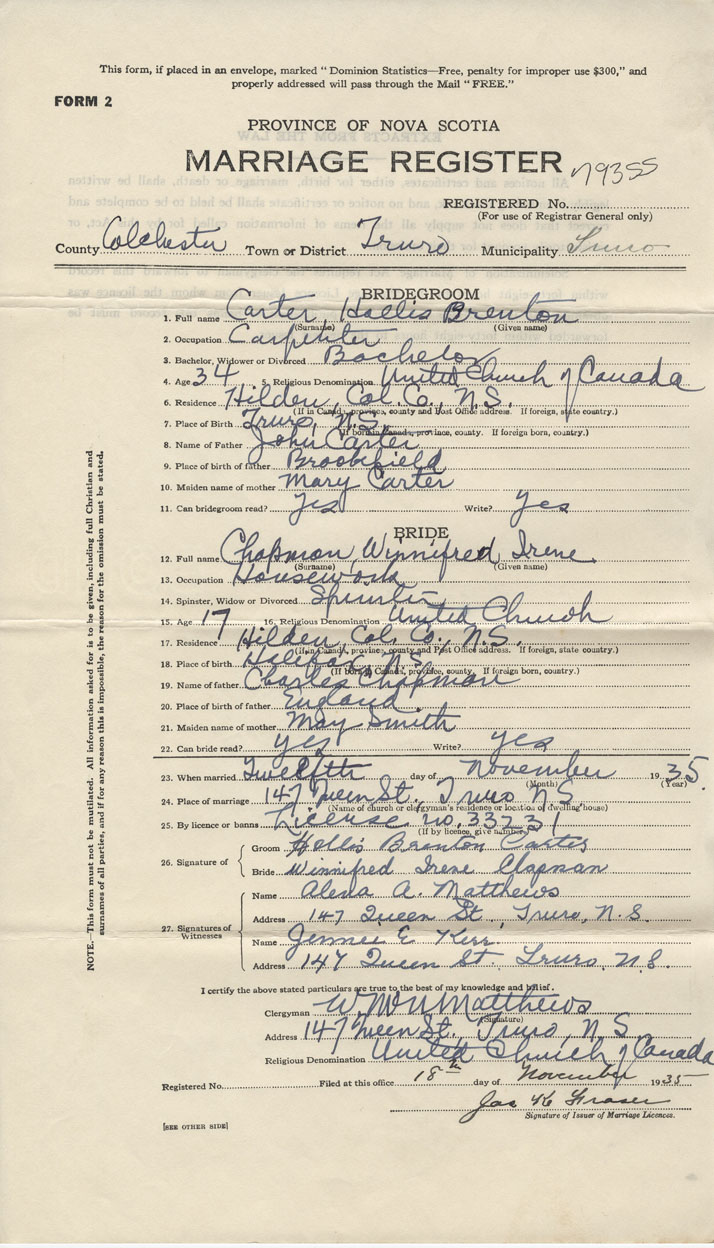 This form, if placed in an envelope, marked " Dominion Statistics—Free, penalty for improper use $300," and
properly addressed will pass through the Mail " FREE."
FORM 2
PROVINCE OF NOVA SCOTIA
MARRIAGE REGISTER 79355
REGISTERED No.
(For use of Registrar General only)
County Colchester Town or District Truro Municipality Truro
BRIDEGROOM
1. Full name Carter, Hollis Brenton
(Surname) (Given name)
2. Occupation Carpenter
3. Bachelor, Widower or Divorced Bachelor
4. Age 34 5. Religious Denomination United Church of Canada
6. Residence Hilden, Col. Co., N.S.
(If in Canada, province, county and Post Office address. If foreign, state country.)
7. Place of Birth Truro, N.S.
(If born in Canada, province, county. If foreign born, country.)
8. Name of Father John Carter
9. Place of birth of father Brookfield
10. Maiden name of mother Mary Carter
11. Can bridegroom read? Yes Write? Yes
BRIDE
12. Full name Chapman, Winnifred Irene
(Surname) (Given name)
13. Occupation Housework
14. Spinster, Widow or Divorced Spinster
15. Age 17 16. Religious Denomination United Church
17. Residence Hilden, Col. Co., N.S.
(If in Canada, province, county and Post Office address. If foreign, state country.)
18. Place of birth Halifax, N.S.
(If born in Canada, province, county. If foreign born, country.)
19. Name of father Charles Chapman
20. Place of birth of father England
21. Maiden name of mother May Smith
22. Can bride read? yes Write? yes
23. When married Twelfth day of November 1935.
(Month) (Year)
24. Place of marriage 147 Queen St., Truro, N S
(Name of church or clergyman's residence or location of dwelling house)
25. By licence or banns License no. 33231
(If by licence, give number)
26. Signature of Groom Hollis Brenton Carter
Bride Winnifred Irene Chapman
27. Signatures of Witnesses
Name Alena A. Matthews
Address 147 Queen St., Truro, N.S.
Name Jennie E Kerr
Address 147 Queen St. Truro, N.S.
I certify the above stated particulars are true to the best of my knowledge and belief.
Clergyman Matthews
(Signature)
Address 147 Queen St. Truro, N S
Religious Denomination United Church of Canada
Registered No. Filed at this office 18th day of November 1935
Jas Fraser
Signature of Issuer of Marriage Licences.
[SEE OTHER SIDE]
NOTE.—This form must not be mutilated. All information asked for is to be given, including full Christian and
surnames of all parties, and if for any reason this is impossible, the reason for the omission must be stated.